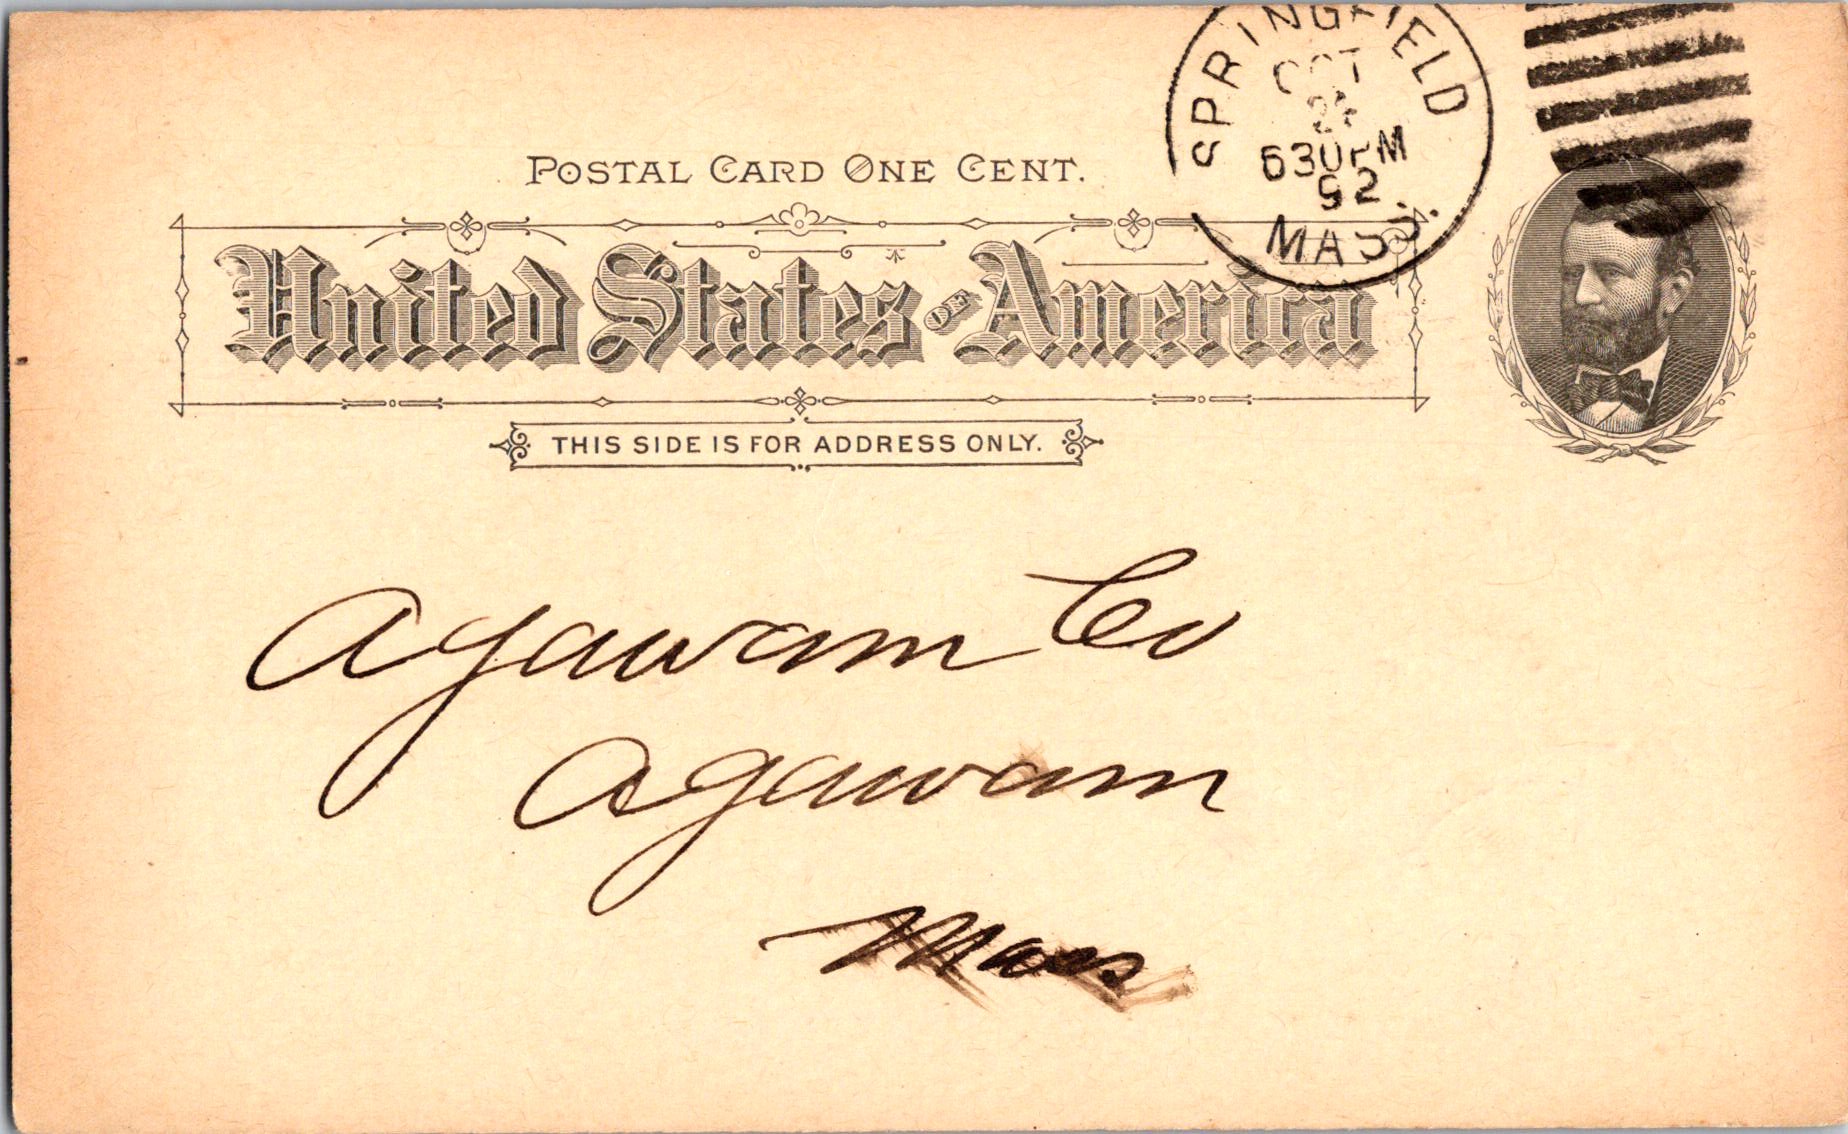 POSTAL CARD ONE CENT.
SPRINGFIELD
OCT
630PM
92
MASS.
United States OF America
THIS SIDE IS FOR ADDRESS ONLY.
Agawam Co
Agawam
Mass